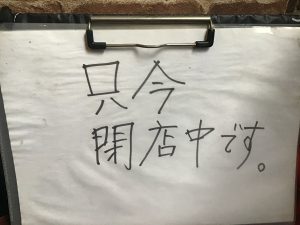 只今
閉店中です。